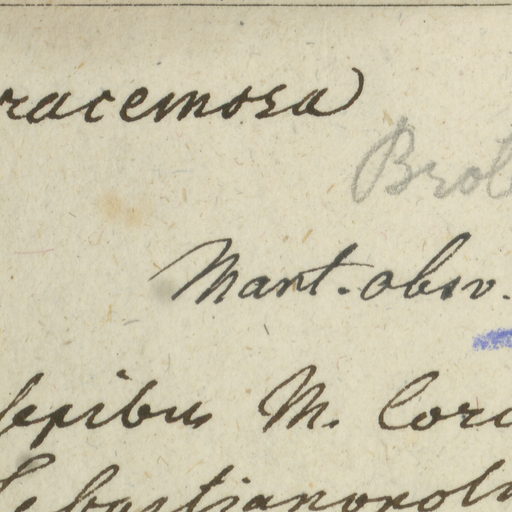 racemosa
Brot
Mart. obsv.
sepibus M. Corc
Sebastianopoli